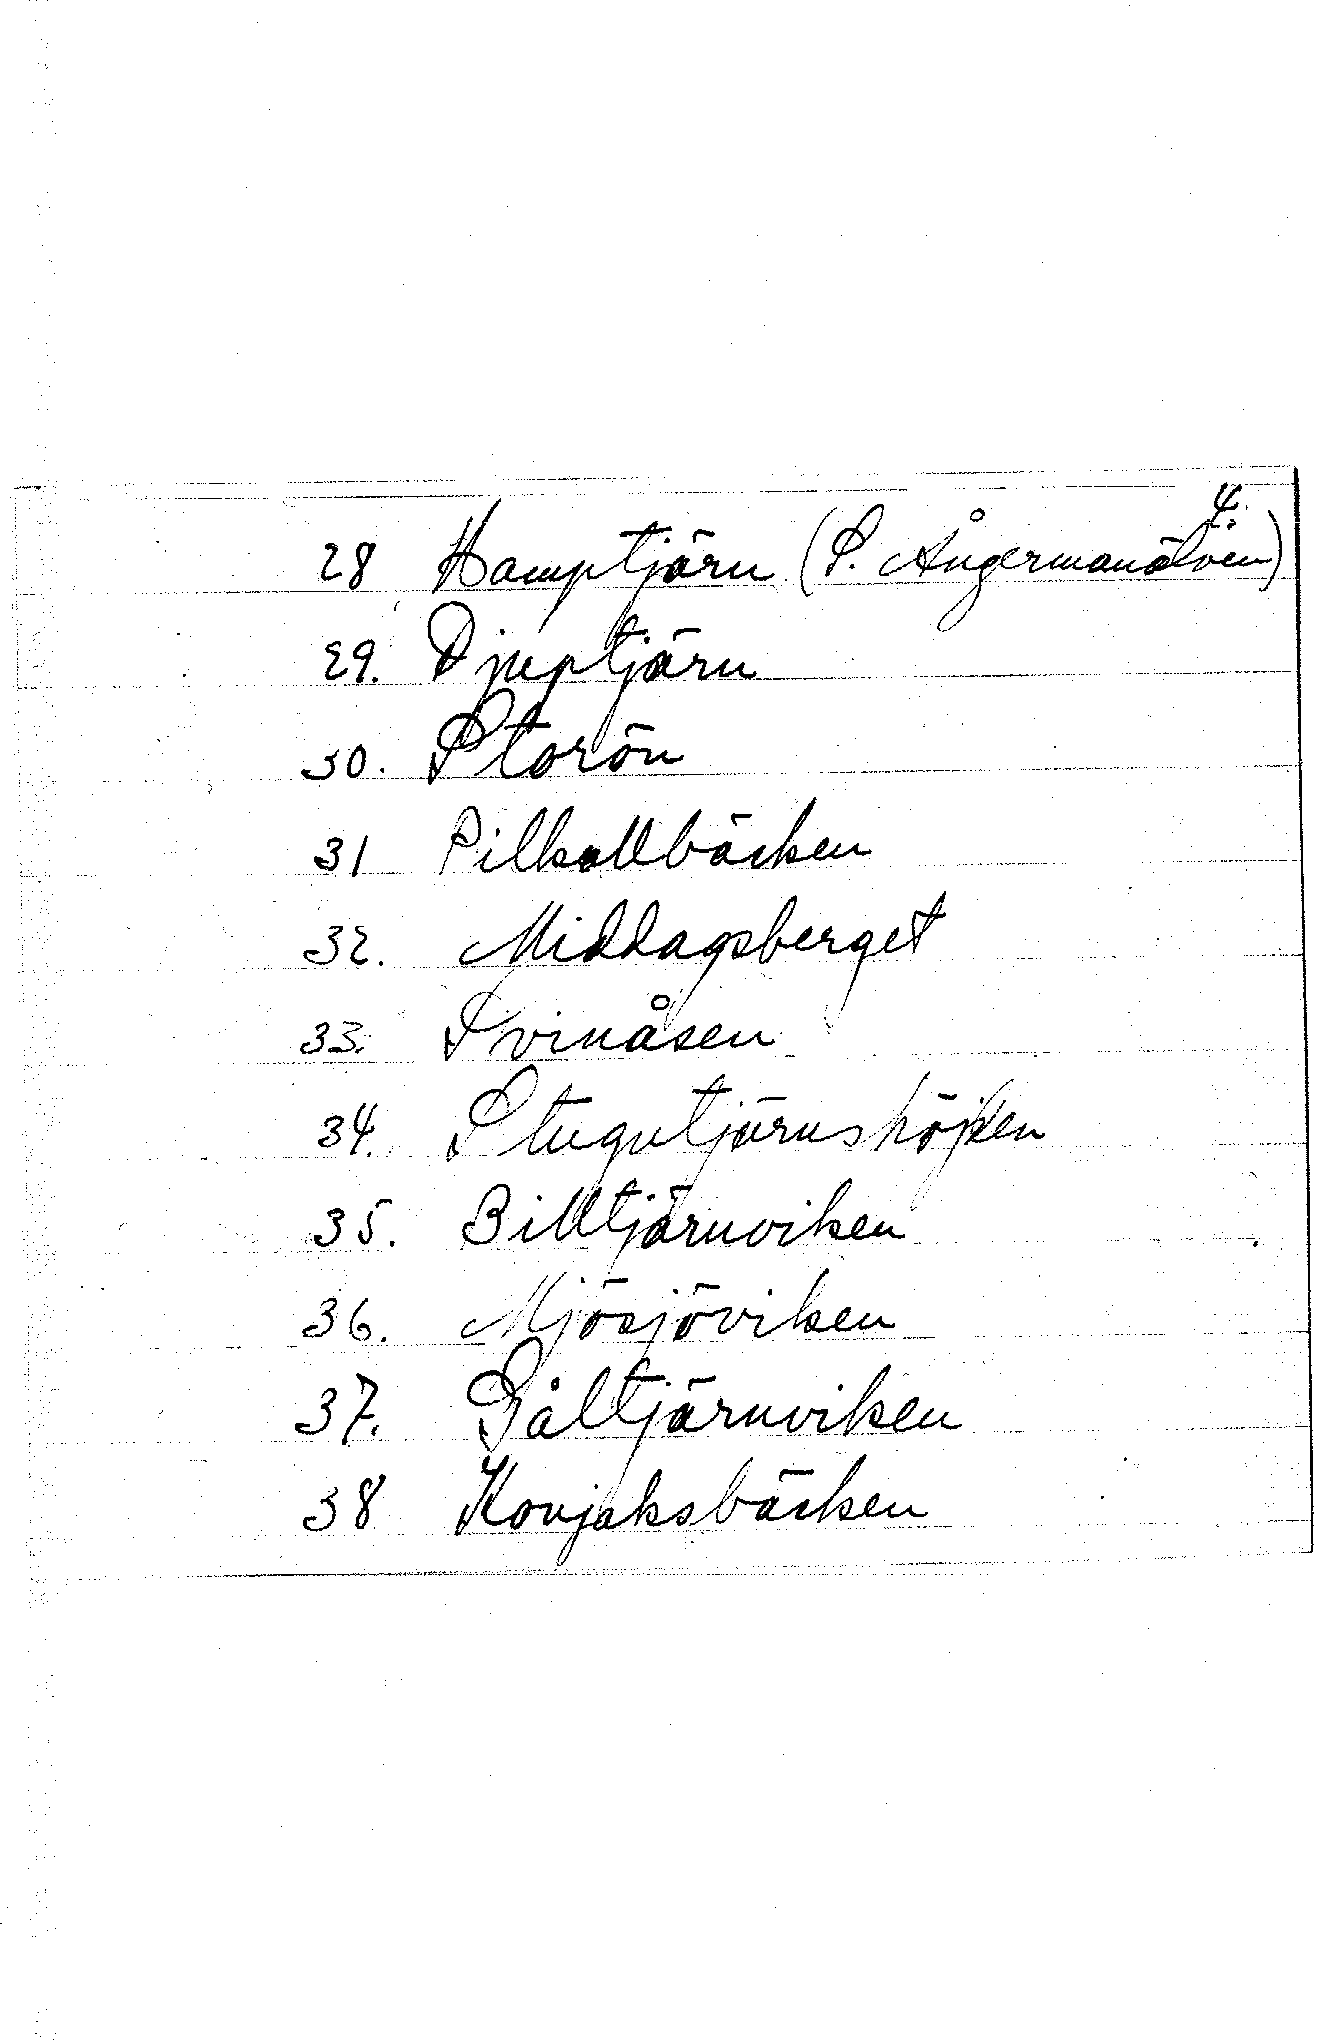 4.
28 Hamptjärn (S. Ångermanälven)
29. Djuptjärn
30. Storön
31 Pilkallbäcken
32. Middagsberget
33. Svinåsen
34. Stugutjärnshöjden
35. Billtjärnviken
36. Mjösjöviken
37. Gåltjärnviken
38 Konjaksbäcken